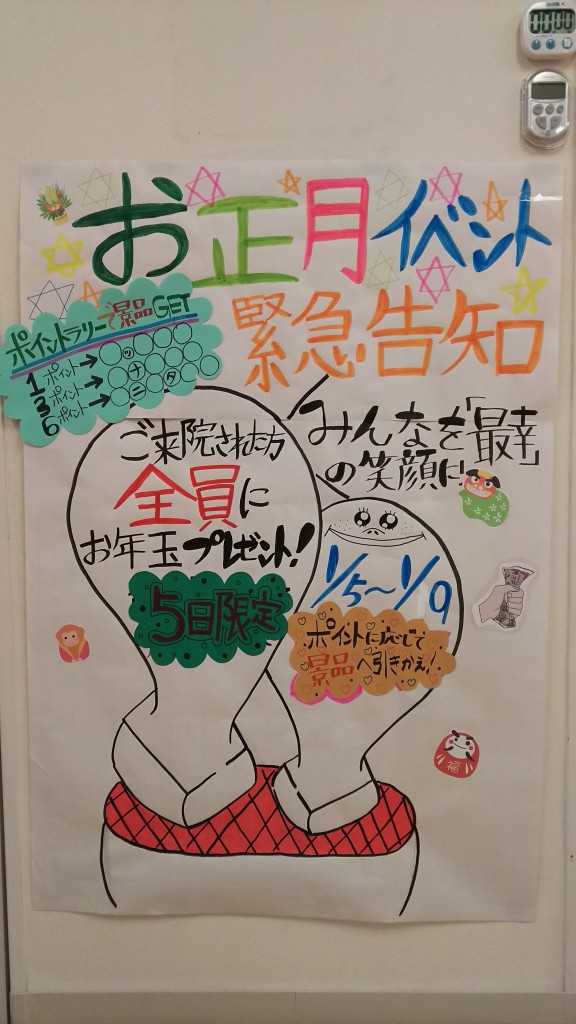 0000
お正月イベント
緊急告知
ポイントラリーで景品GET
1ポイント→
3ポイント→
6ポイント→
みんなを「最幸」
の笑顔に!
ご来院された方
全員に
お年玉プレゼント!
5日限定
1/5〜1/9
ポイントに応じて
景品へ引きかえ!
福